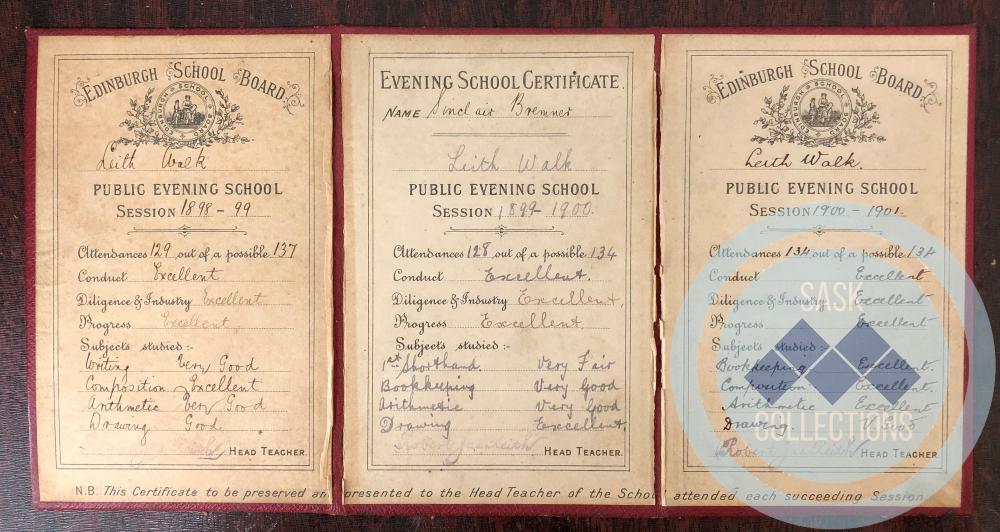 EDINBURGH SCHOOL BOARD.
EDINBURGH SCHOOL BOARD
Leith Walk
PUBLIC EVENING SCHOOL
SESSION 1898 - 99
Attendances 129 out of a possible 137
Conduct Excellent
Diligence & Industry Excellent
Progress Excellent
Subjects studied :-
Writing Very Good
Composition Excellent
Arithmetic Very Good
Drawing Good
HEAD TEACHER.
EVENING SCHOOL CERTIFICATE.
NAME Sinclair Bremner
Leith Walk
PUBLIC EVENING SCHOOL
SESSION 1899-1900.
Attendances 128 out of a possible 134
Conduct Excellent.
Diligence & Industry Excellent,
Progress Excellent.
Subjects studied :-
1st Shorthand. Very Fair
Bookkeeping Very Good
Arithmetic Very Good
Drawing Excellent.
Robert HEAD TEACHER.
EDINBURGH SCHOOL BOARD.
EDINBURGH SCHOOL BOARD
Leith Walk.
PUBLIC EVENING SCHOOL
SESSION 1900 - 1901.
Attendances 134 out of a possible 134
Conduct Excellent
Diligence & Industry Excellent
Progress Excellent
Subjects studied :-
Bookkeeping Excellent.
Composition Excellent.
Arithmetic Excellent
Drawing. V. Good
Robert HEAD TEACHER.
N.B. This Certificate to be preserved an presented to the Head Teacher of the Schoo attended each succeeding Session
SASK
COLLECTIONS